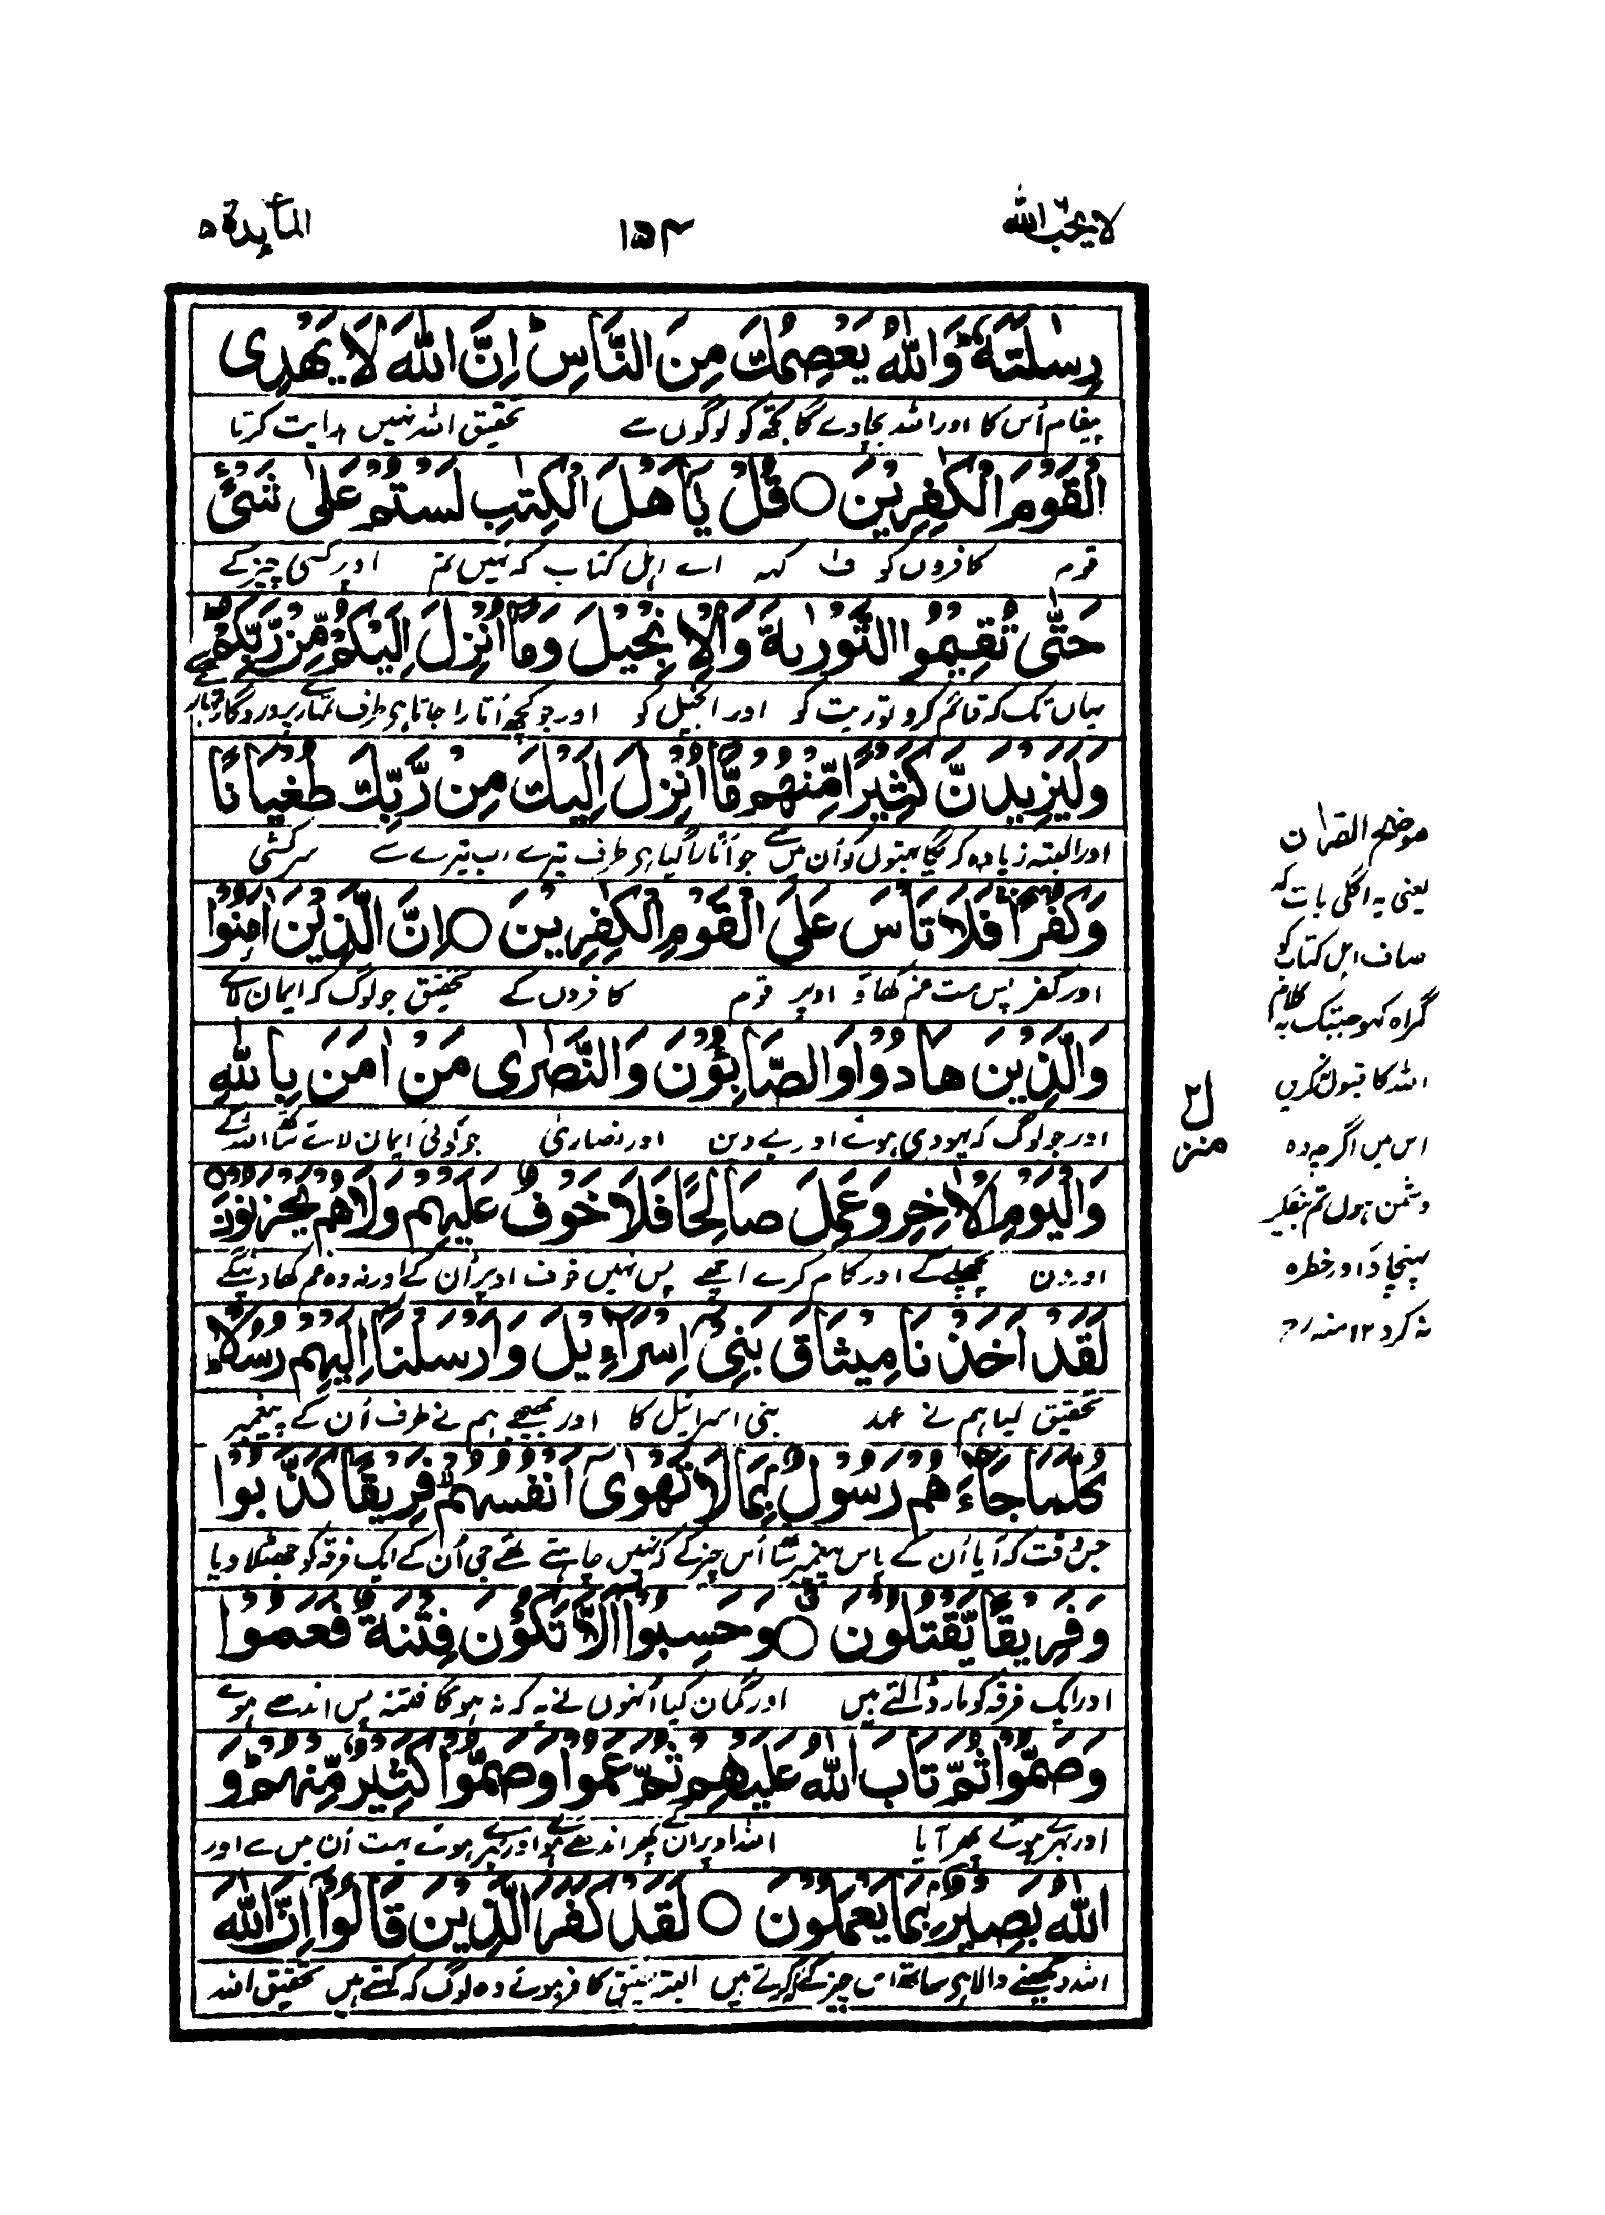 لا يحب الله
١٥٤
المآئدة ٥
رِسٰلَتَهٗ ؕ وَاللّٰهُ يَعْصِمُكَ مِنَ النَّاسِ ؕ اِنَّ اللّٰهَ لَا يَهْدِى
پیغام اُس کا اور اللہ بچاوے گا تجھ کو لوگوں سے تحقیق اللہ نہیں ہدایت کرتا
الْقَوْمَ الْكٰفِرِيْنَ ○ قُلْ يٰٓاَهْلَ الْكِتٰبِ لَسْتُمْ عَلٰى شَىْءٍ
قوم کافروں کو ف۱ کہہ اے اہل کتاب کہ نہیں تم اوپر کسی چیز کے
حَتّٰى تُقِيْمُوا التَّوْرٰىةَ وَالْاِنْجِيْلَ وَمَآ اُنْزِلَ اِلَيْكُمْ مِّنْ رَّبِّكُمْ ؕ
یہاں تک کہ قائم کرو توریت کو اور انجیل کو اور جو کچھ اُتارا جاتا ہی طرف تمہارے پروردگار تمہارے سے
وَلَيَزِيْدَنَّ كَثِيْرًا مِّنْهُمْ مَّآ اُنْزِلَ اِلَيْكَ مِنْ رَّبِّكَ طُغْيَانًا
اور البتہ زیادہ کریگا بہتوں کو اُن میں سے جو اُتارا گیا ہی طرف تیرے رب تیرے سے سرکشی
وَّكُفْرًا ۚ فَلَا تَاْسَ عَلَى الْقَوْمِ الْكٰفِرِيْنَ ○ اِنَّ الَّذِيْنَ اٰمَنُوْا
اور کفر پس مت غم کھاؤ اوپر قوم کافروں کے تحقیق جو لوگ کہ ایمان لائے
وَالَّذِيْنَ هَادُوْا وَالصَّابِـُٔوْنَ وَالنَّصٰرٰى مَنْ اٰمَنَ بِاللّٰهِ
اور جو لوگ کہ یہودی ہوئے اور بے دین اور نصاریٰ جو کوئی ایمان لاے ساتھ اللہ کے
وَالْيَوْمِ الْاٰخِرِ وَعَمِلَ صَالِحًا فَلَا خَوْفٌ عَلَيْهِمْ وَلَا هُمْ يَحْزَنُوْنَ ○
اور دن پچھلے کے اور کام کرے اچھے پس نہیں خوف اوپر اُن کے اور نہ وہ غم کھاوینگے
لَقَدْ اَخَذْنَا مِيْثَاقَ بَنِىْٓ اِسْرَآءِيْلَ وَاَرْسَلْنَآ اِلَيْهِمْ رُسُلًا ؕ
تحقیق لیا ہم نے عہد بنی اسرائیل کا اور بھیجے ہم نے طرف اُن کے پیغمبر
كُلَّمَا جَآءَهُمْ رَسُوْلٌۢ بِمَا لَا تَهْوٰٓى اَنْفُسُهُمْ ۙ فَرِيْقًا كَذَّبُوْا
جس وقت کہ آیا اُن کے پاس پیغمبر ساتھ اُس چیز کے کہ نہیں چاہتے تھے جی اُن کے ایک فرقہ کو جھٹلا دیا
وَفَرِيْقًا يَّقْتُلُوْنَ ○ وَحَسِبُوْٓا اَلَّا تَكُوْنَ فِتْنَةٌ فَعَمُوْا
اور ایک فرقہ کو مار ڈالتے ہیں اور گمان کیا اُنھوں نے یہ کہ نہ ہوگا فتنہ پس اندھے ہوے
وَصَمُّوْا ثُمَّ تَابَ اللّٰهُ عَلَيْهِمْ ثُمَّ عَمُوْا وَصَمُّوْا كَثِيْرٌ مِّنْهُمْ ؕ وَ
اور بہرے ہوئے پھر آیا اللہ اوپر اُن کے پھر اندھے ہوئے اور بہرے ہوئے بہت اُن میں سے اور
اللّٰهُ بَصِيْرٌۢ بِمَا يَعْمَلُوْنَ ○ لَقَدْ كَفَرَ الَّذِيْنَ قَالُوْٓا اِنَّ اللّٰهَ
اللہ دیکھنے والا ہی ساتھ اس چیز کے کہ کرتے ہیں البتہ تحقیق کافر ہوئے وہ لوگ کہ کہتے ہیں تحقیق اللہ
موضح القرآن
یعنی یہ اگلی بات کہ
صاف اہل کتاب کو
گمراہ کہو جبتک یہ کلام
اللہ کا قبول نہ کریں
اس میں اگرچہ وہ
دشمن ہوں تم بیفکر
پہنچاؤ اور خطرہ
نہ کرو ۱۲ منہ رح
منزل ۲